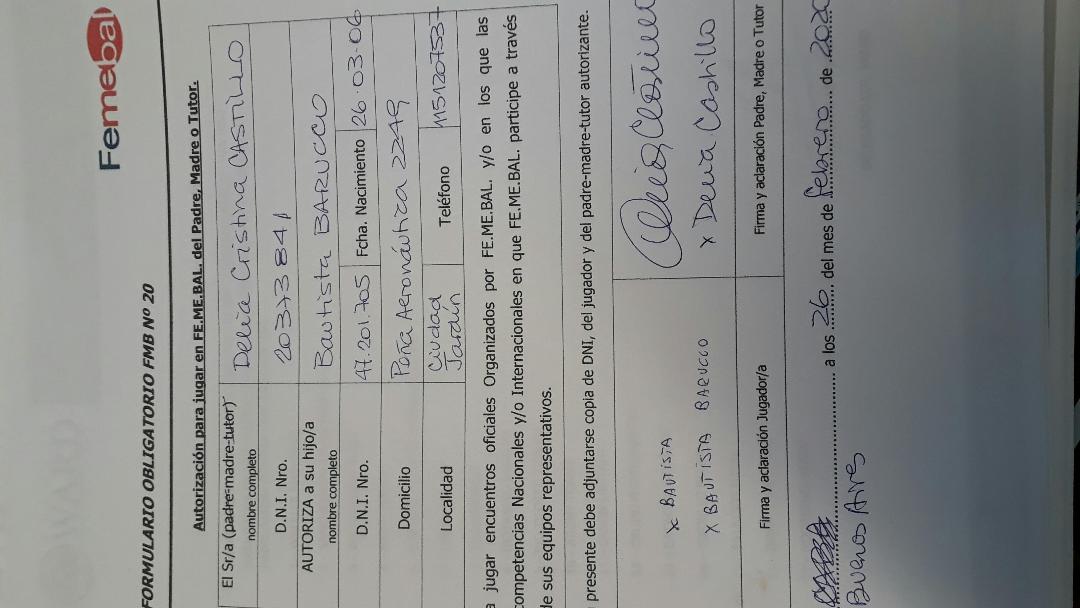 Femebal
FORMULARIO OBLIGATORIO FMB Nº 20
Autorización para jugar en FE.ME.BAL. del Padre, Madre o Tutor.
El Sr/a (padre-madre-tutor) Delia Cristina CASTILLO
nombre completo
D.N.I. Nro. 20373841
AUTORIZA a su hijo/a Bautista BARUCCO
nombre completo
D.N.I. Nro. 47.201.705 Fcha. Nacimiento 26.03.06
Domicilio Peña Aeronáutica 2249
Localidad Ciudad Jardín Teléfono 1151207537
a jugar encuentros oficiales Organizados por FE.ME.BAL. y/o en los que las
competencias Nacionales y/o Internacionales en que FE.ME.BAL. participe a través
de sus equipos representativos.
presente debe adjuntarse copia de DNI, del jugador y del padre-madre-tutor autorizante.
x BAUTISTA
x BAUTISTA BARUCCO x Delia Castillo
Firma y aclaración Jugador/a Firma y aclaración Padre, Madre o Tutor
a los 26 del mes de febrero de 2020
Buenos Aires